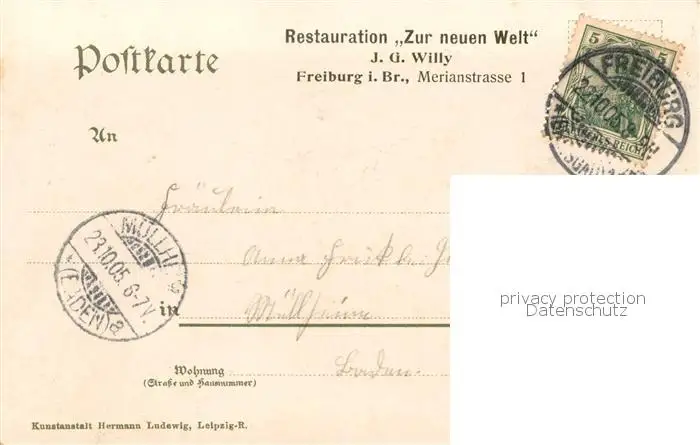 Restauration „Zur neuen Welt“
J. G. Willy
Freiburg i. Br., Merianstrasse 1
Postkarte
5 5
FREIBURG
23.10.05.
DEUTSCHES REICH
An
Fräulein
Anna
MÜLLHEIM
23.10.05. 6-7V.
(BADEN) a
in Müllheim
Baden.
Wohnung
(Straße und Hausnummer)
privacy protection
Datenschutz
Kunstanstalt Hermann Ludewig, Leipzig-R.